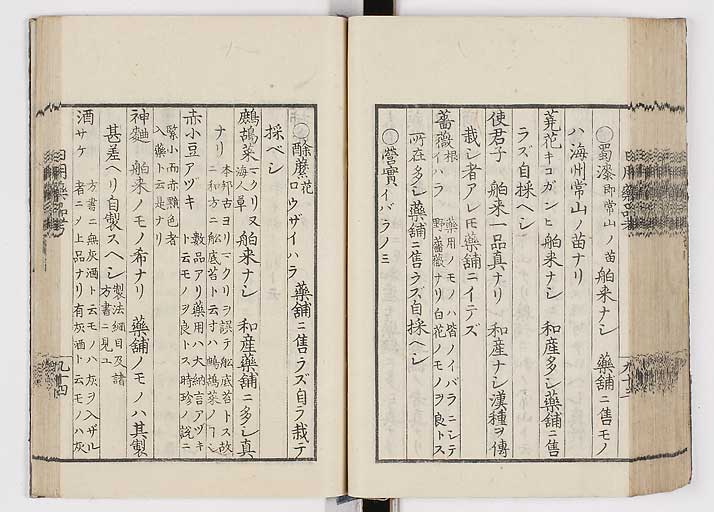 〇蜀漆 即常山ノ苗 舶来ナシ 藥舗ニ售モノ
ハ海州常山ノ苗ナリ
蕘花 キコガンヒ 舶来ナシ 和産多シ藥舗ニ售
ラズ自採ヘシ
使君子 舶来一品真ナリ 和産ナシ漢種ヲ傳
栽シ者アレ𪜈藥舗ニイデズ
薔薇根 イハラ 藥用ノモノハ皆ノイバラニシテ
野薔薇ナリ白花ノモノヲ良トス
所在多シ藥舗ニ售ラズ自採ヘシ
〇營實 イバラノミ
〇酴醿花 ロウザイハラ 藥舗ニ售ラズ自ラ栽テ
採ベシ
鷓鴣菜 マクリ又海人草 舶来ナシ 和産藥舗ニ多シ真
ナリ 本邦古ヨリマクリヲ誤テ舩底苔トス故
ニ和方ニ舩底苔ト云寸ハ鷓鴣菜ノ
赤小豆 アヅキ 數品アリ藥用ハ大納言アヅキ
ト云モノヲ良トス時珍ノ説ニ
緊小而赤黯色者
入藥ト云是ナリ
神麯 舶来ノモノ希ナリ 藥舗ノモノハ其製
甚差ヘリ自製スヘシ 製法綱目及諸
方書ニ見ユ
酒 サケ 方書ニ無灰酒ト云モノハ灰ヲ入ザル
者ニメ上品ナリ有灰酒ト云モノハ灰
日用藥品考
九十四